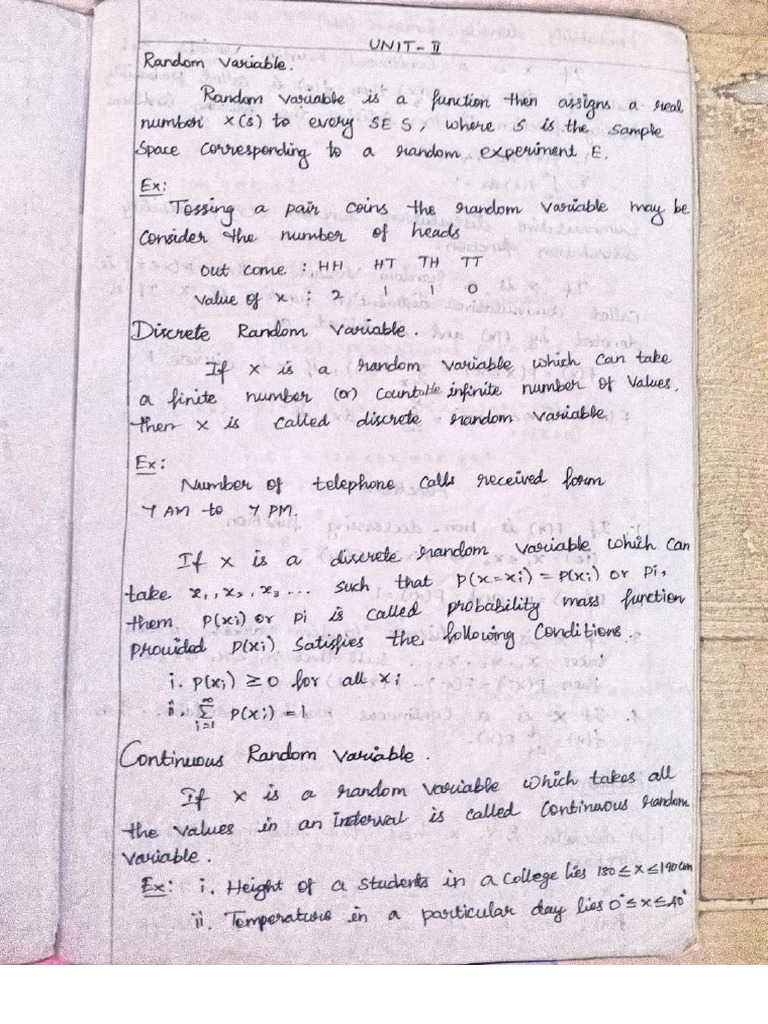 UNIT - II
Random Variable.
Random variable is a function then assigns a real
number X(s) to every SES, where S is the sample
Space corresponding to a random experiment E.
Ex:
Tossing a pair coins the random variable may be
Consider the number of heads
Out come : HH HT TH TT
Value of x : 2 1 1 0
Discrete Random Variable.
If X is a random variable which can take
a finite number (or) Countable infinite number of values.
then X is called discrete random variable
Ex:
Number of telephone calls received form
7 AM to 7 PM.
If X is a discrete random variable which can
take x₁, x₂, x₃ ... such that P(x=xi) = P(xi) or Pi,
them P(xi) or Pi is called probability mass function
provided P(xi) Satisfies the following Conditions.
i. P(xi) ≥ 0 for all xi
ii. ∞∑i=1 P(xi) = 1
Continuous Random Variable.
If X is a random variable which takes all
the values in an interval is called Continuous random
variable.
Ex: i. Height of a students in a college lies 180 ≤ x ≤ 190 cm
ii. Temperature in a particular day lies 0° ≤ x ≤ 40°